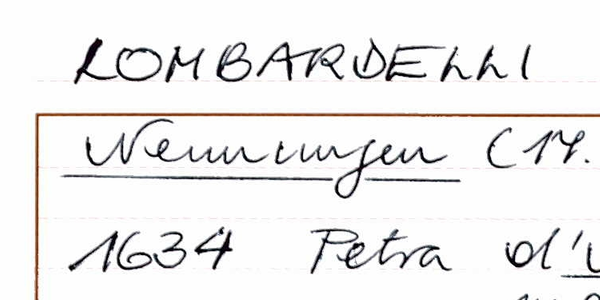 LOMBARDELLI
Nenningen (17.
1634 Petra d'